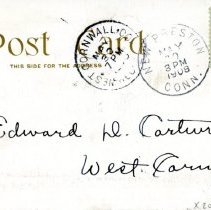 Post Card
THIS SIDE FOR THE ADDRESS
WEST CORNWALL, CO
MAY
7 PM
NEW PRESTON
MAY
3 PM
1908
CONN.
Edward D. Cartwr
West Corn